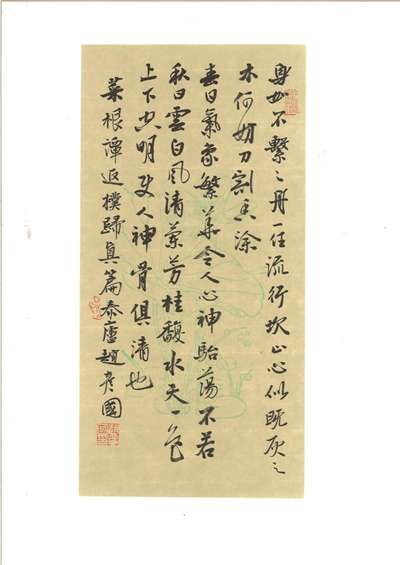 身如不繫之舟一任流行坎止心似既灰之
木何妨刀割香塗
春日氣象繁華令人心神駘蕩不若
秋日雲白風清蘭芳桂馥水天一色
上下空明使人神骨俱清也
菜根譚返樸歸真篇泰廬趙彥國